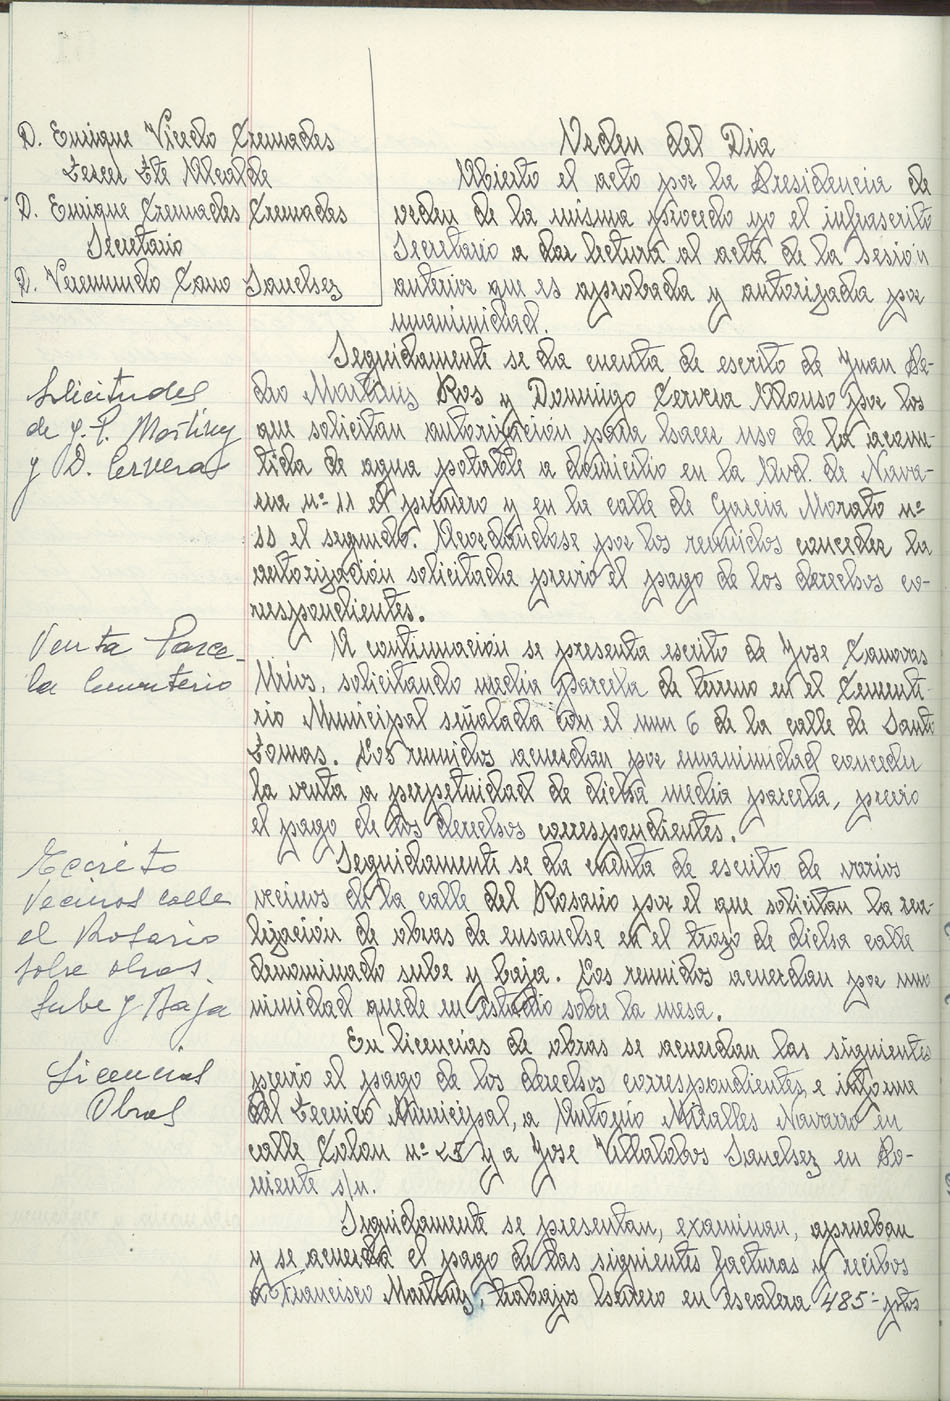 D. Enrique Vicedo Cremades
Tercer Tte Alcalde
D. Enrique Cremades Cremades
Secretario
D. Veremundo Cano Sanchez
Orden del Dia
Abierto el acto por la Presidencia de
orden de la misma procedo yo el infrascrito
Secretario a dar lectura al acta de la sesión
anterior que es aprobada y autorizada por
unanimidad.
Solicitudes
de J. P. Martinez
y D. Cervera
Seguidamente se da cuenta de escrito de Juan Pe-
dro Martinez Ros y Domingo Cervera Alonso por los
que solicitan autorización para hacer uso de la acome-
tida de agua potable a domicilio en la Avd. de Nava-
rra nº 11 el primero y en la calle de Garcia Morato nº
el segundo. Acordandose por los reunidos conceder la
autorización solicitada previo el pago de los derechos co-
rrespondientes.
Venta Parce-
la Cementerio
A continuación se presenta escrito de Jose Canovas
solicitando media parcela de terreno en el Cemente-
rio Municipal señalada con el num 6 de la calle de Santo
Tomas. Los reunidos acuerdan por unanimidad conceder
la venta a perpetuidad de dicha media parcela, previo
el pago de los derechos correspondientes.
Escrito
Vecinos calle
el Rosario
sobre obras
Sube y Baja
Seguidamente se da cuenta de escrito de varios
vecinos de la calle del Rosario por el que solicitan la rea-
lización de obras de ensanche en el trozo de dicha calle
denominado sube y baja. Los reunidos acuerdan por una
nimidad quede en estudio sobre la mesa.
Licencias
Obras
En licencias de obras se acuerdan las siguientes
previo el pago de los derechos correspondientes, e informe
del Tecnico Municipal, a Antonio Miralles Navarro en
calle Colon nº 25 y a Jose Villalobos Sanchez en Po-
niente s/n.
Seguidamente se presentan, examinan, aprueban
y se acuerda el pago de las siguientes facturas y recibos
a Francisco Martinez, trabajos herrero en escalera 485'- pts